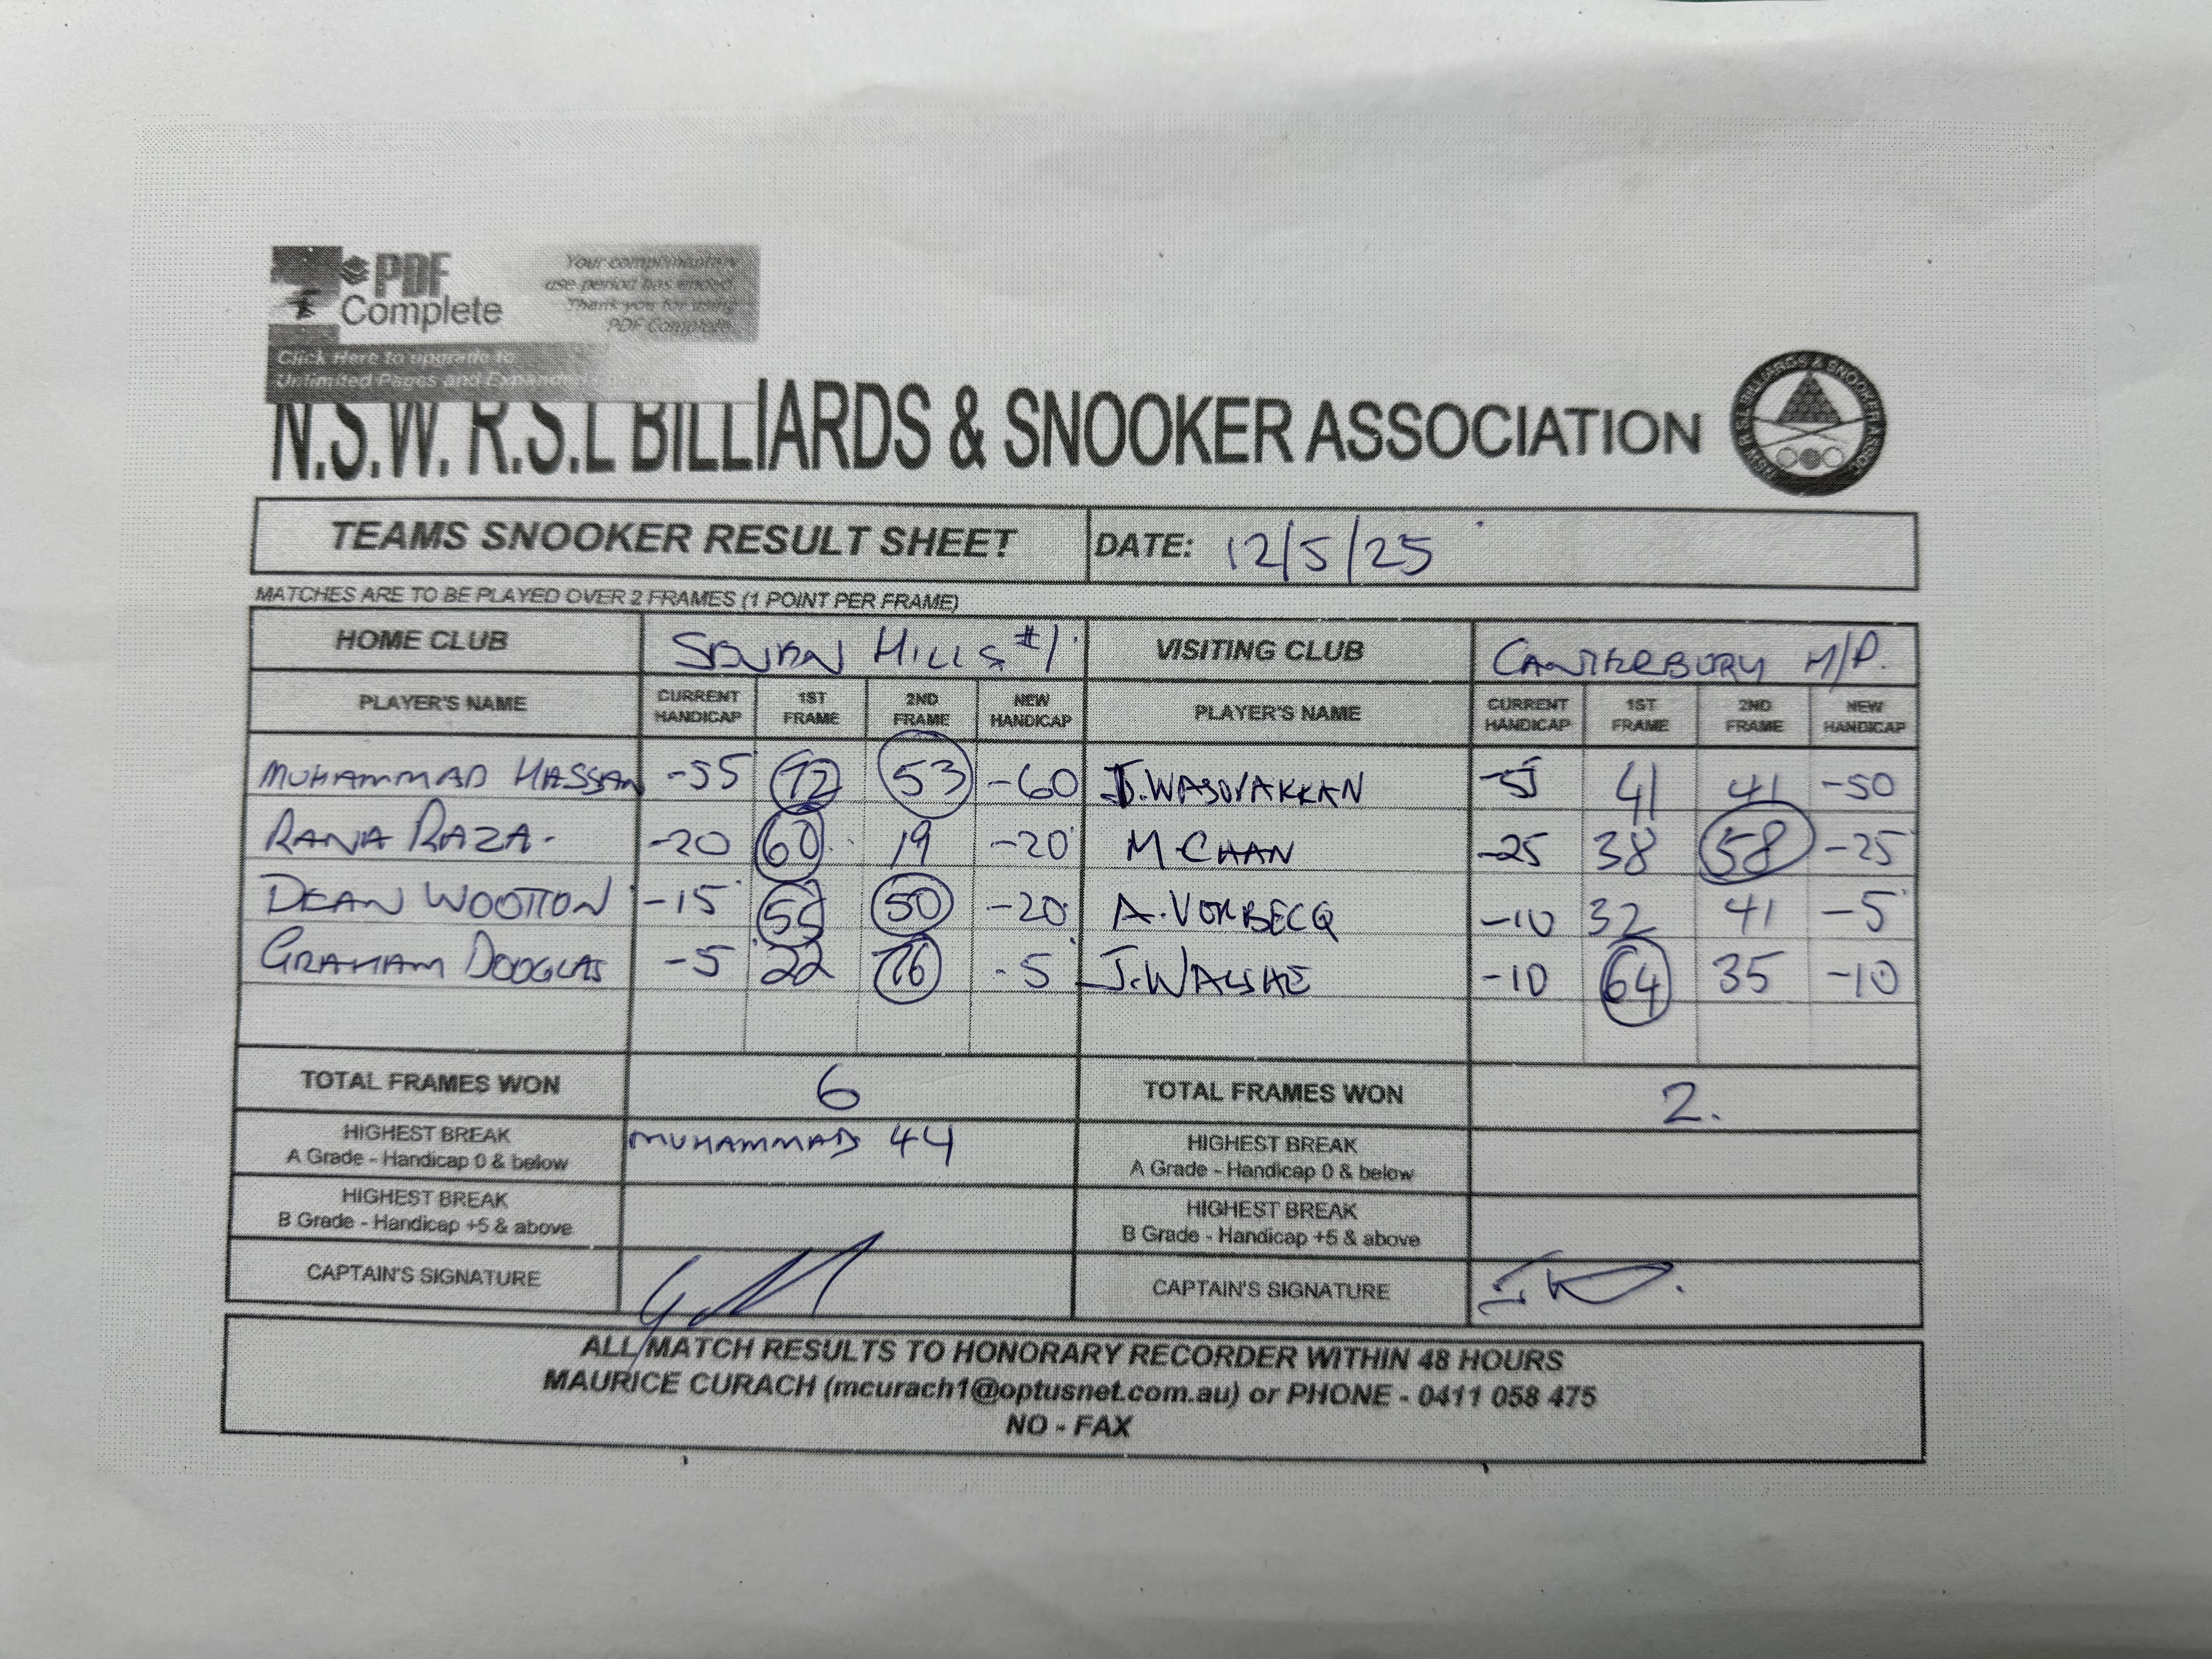 PDF
Complete
Your complimentary
use period has ended.
Thank you for using
PDF Complete.
Click Here to upgrade to
Unlimited Pages and Expanded
N.S.W. R.S.L BILLIARDS & SNOOKER ASSOCIATION
NSW R S L BILLIARDS & SNOOKER ASSOC
TEAMS SNOOKER RESULT SHEET DATE: 12/5/25
MATCHES ARE TO BE PLAYED OVER 2 FRAMES (1 POINT PER FRAME)
HOME CLUB HILLS #1 VISITING CLUB CANTERBURY H/P.
PLAYER'S NAME CURRENT HANDICAP 1ST FRAME 2ND FRAME NEW HANDICAP PLAYER'S NAME CURRENT HANDICAP 1ST FRAME 2ND FRAME NEW HANDICAP
MUHAMMAD HASSAN -55 72 53 -60 41 41 -50
RANA RAZA. -20 60 19 -20 M CHAN -25 38 58 -25
DEAN WOOTTON -15 50 -20 A. VORBECQ -10 32 41 -5
GRAHAM DOUGLAS -5 22 76 -5 J. WALSHE -10 64 35 -10
TOTAL FRAMES WON 6 TOTAL FRAMES WON 2.
HIGHEST BREAK
A Grade - Handicap 0 & below MUHAMMAD 44 HIGHEST BREAK
A Grade - Handicap 0 & below
HIGHEST BREAK
B Grade - Handicap +5 & above HIGHEST BREAK
B Grade - Handicap +5 & above
CAPTAIN'S SIGNATURE CAPTAIN'S SIGNATURE
ALL MATCH RESULTS TO HONORARY RECORDER WITHIN 48 HOURS
MAURICE CURACH (mcurach1@optusnet.com.au) or PHONE - 0411 058 475
NO - FAX